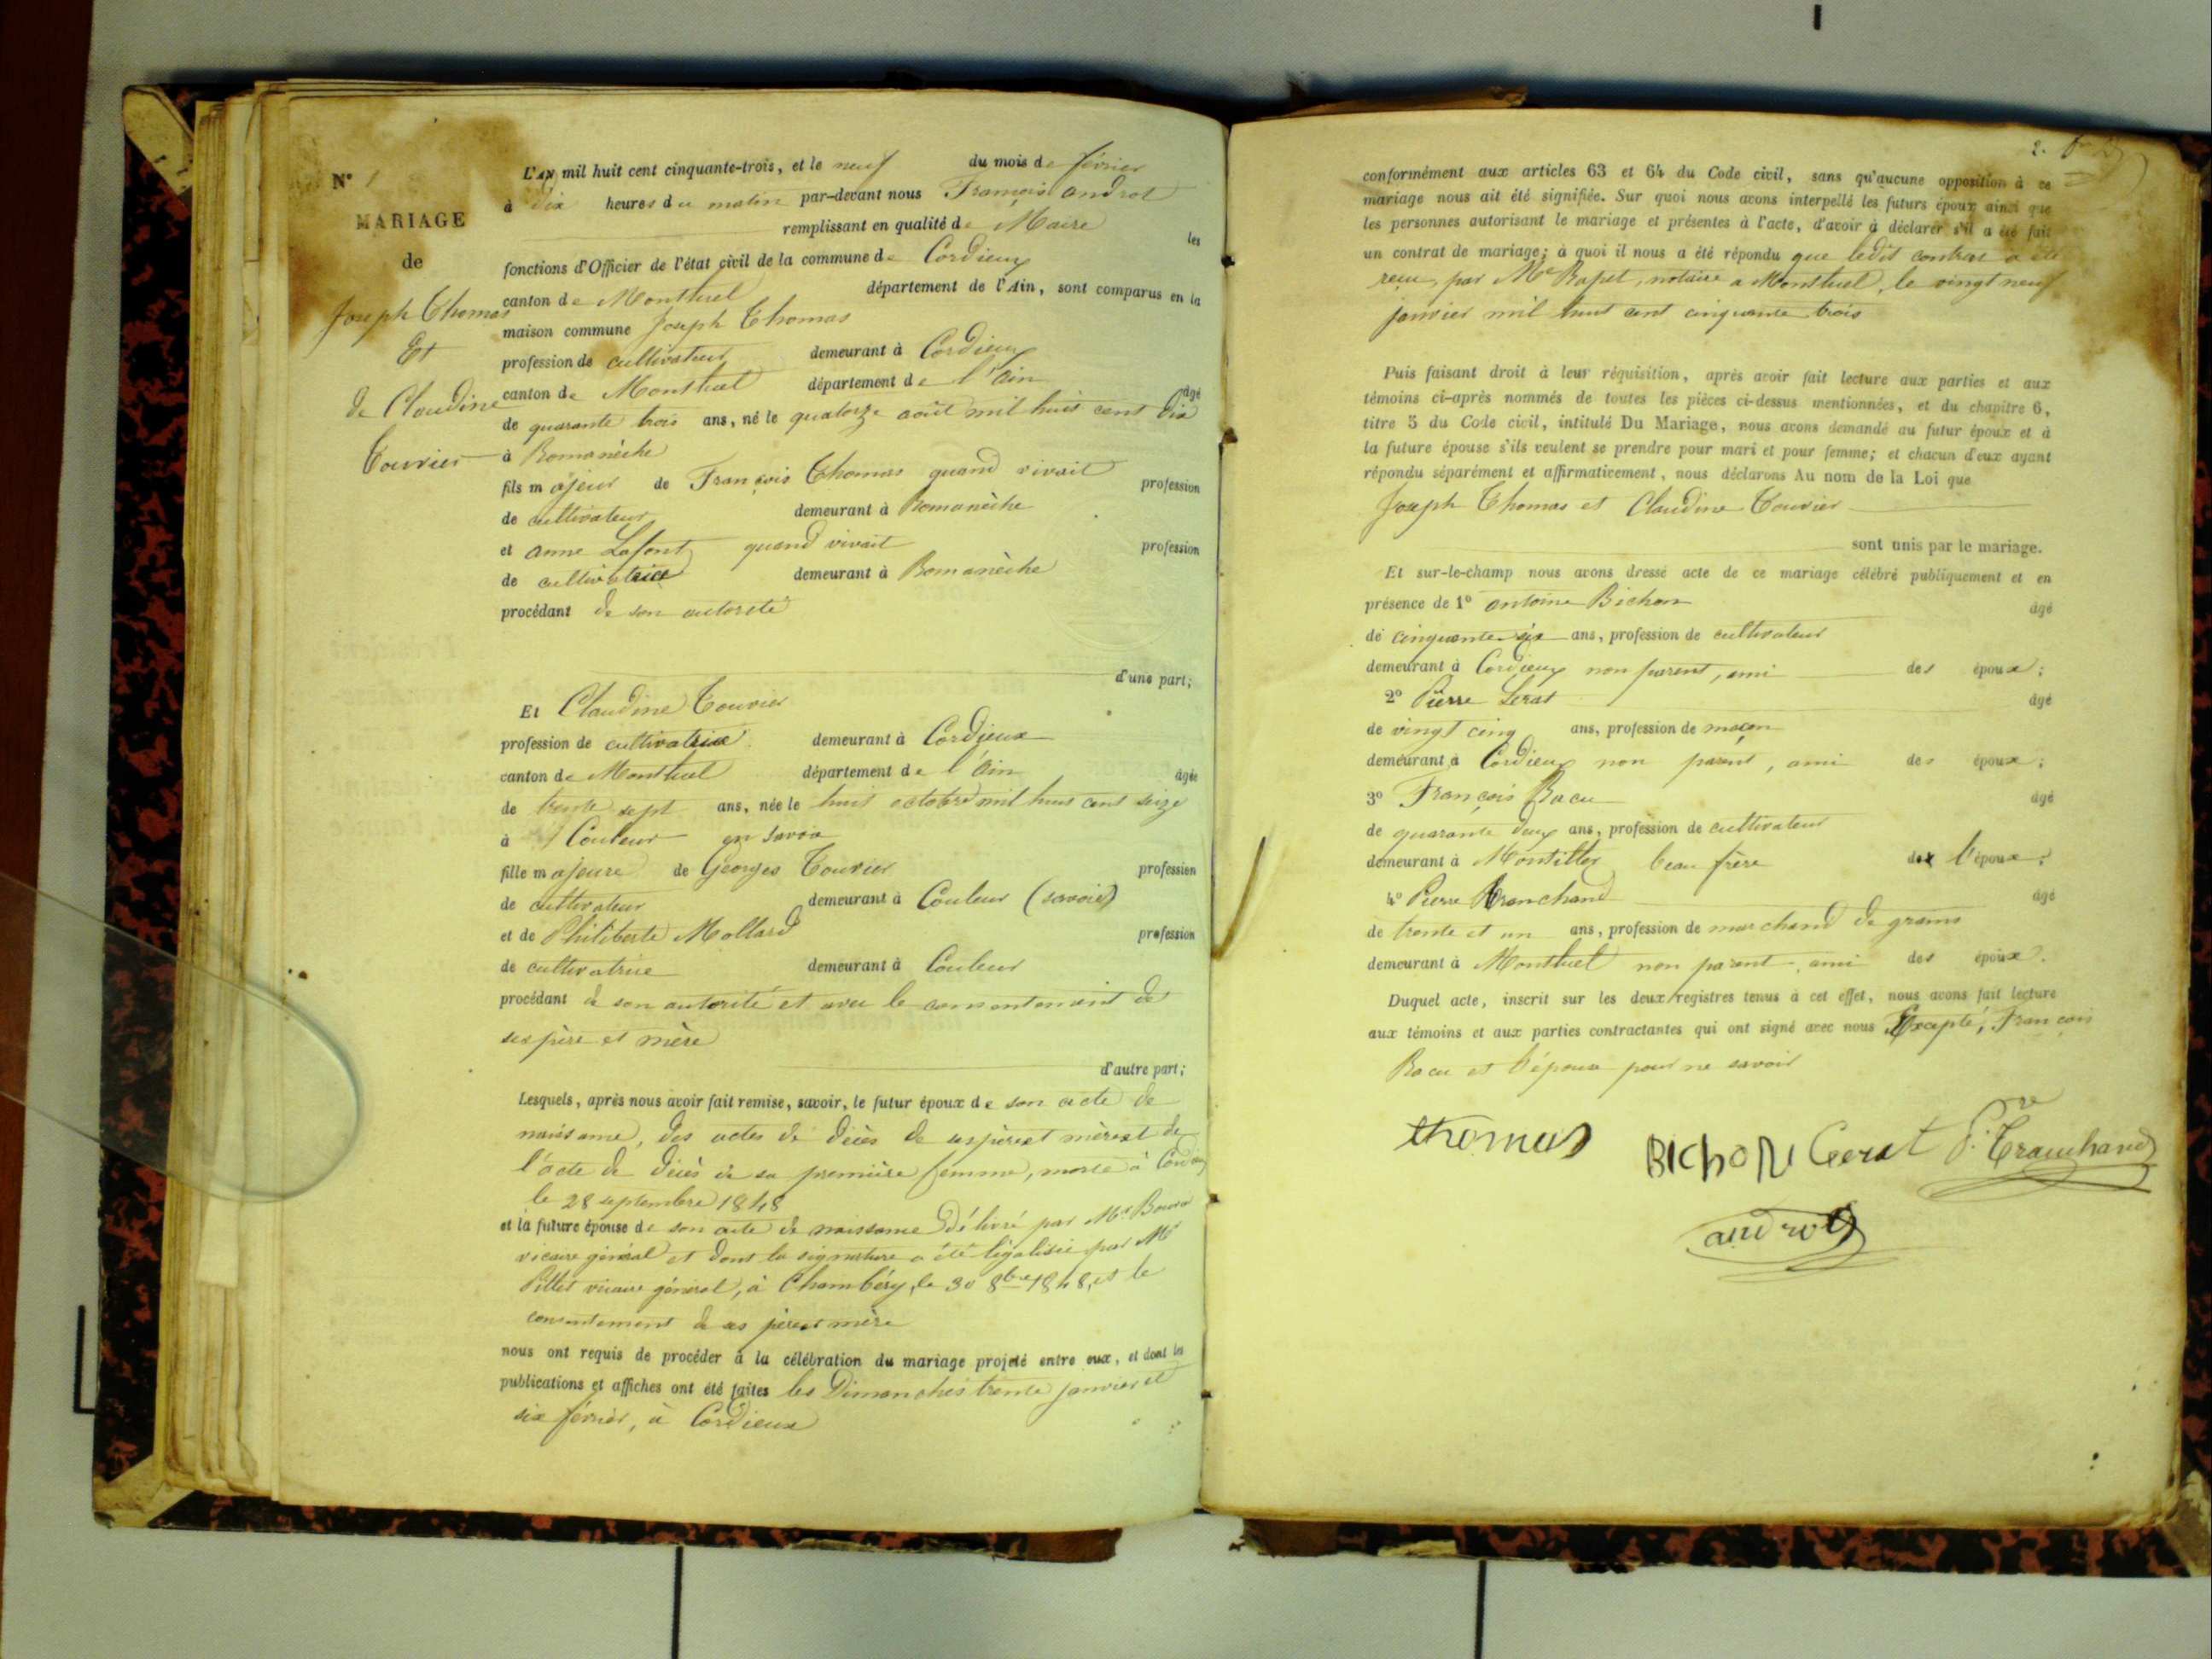 N° 1
MARIAGE
de
Joseph Thomas
Et
de Claudine
Touvier
L'AN mil huit cent cinquante-trois, et le neuf du mois de février
à dix heures du matin par-devant nous François androt
remplissant en qualité de Maire les
fonctions d'Officier de l'état civil de la commune de Cordieux
canton de Montluel département de l'Ain, sont comparus en la
maison commune Joseph Thomas
profession de cultivateur demeurant à Cordieux
canton de Montluel département de l'ain âgé
de quarante trois ans, né le quatorze août mil huit cent dix
à Romanèche
fils majeur de François Thomas quand vivait profession
de cultivateur demeurant à Romanèche
et anne Lafont quand vivait profession
de cultivatrice demeurant à Romanèche
procédant de son autorité
d'une part;
Et Claudine Touvier
profession de cultivatrice demeurant à Cordieux
canton de Montluel département de l'ain âgée
de trente sept ans, née le huit octobre mil huit cent seize
à Couleur en Savoie
fille majeure de Georges Touvier profession
de cultivateur demeurant à Couleur (savoie)
et de Philiberte Mollard profession
de cultivatrice demeurant à Couleur
procédant de son autorité et avec le consentement de
ses père et mère
d'autre part;
Lesquels, après nous avoir fait remise, savoir, le futur époux de son acte de
naissance, des actes de décès de ses père et mère et de
l'acte de décès de sa première femme, morte à Cordieux
le 28 septembre 1848
et la future épouse de son acte de naissance délivré par Mr
vicaire général et dont la signature a été légalisée par Mr
Pillet vicaire général, à Chambéry, le 30 8bre 1848, et le
consentement de ses père et mère
nous ont requis de procéder à la célébration du mariage projeté entre eux, et dont les
publications et affiches ont été faites les Dimanches trente janvier et
six février, à Cordieux
2.
conformément aux articles 63 et 64 du Code civil, sans qu'aucune opposition à ce
mariage nous ait été signifiée. Sur quoi nous avons interpellé les futurs époux ainsi que
les personnes autorisant le mariage et présentes à l'acte, d'avoir à déclarer s'il a été fait
un contrat de mariage; à quoi il nous a été répondu que ledit contrat a été
reçu par Me Rapet, notaire a Montluel, le vingt neuf
janvier mil huit cent cinquante trois
Puis faisant droit à leur réquisition, après avoir fait lecture aux parties et aux
témoins ci-après nommés de toutes les pièces ci-dessus mentionnées, et du chapitre 6,
titre 5 du Code civil, intitulé Du Mariage, nous avons demandé au futur époux et à
la future épouse s'ils veulent se prendre pour mari et pour femme; et chacun d'eux ayant
répondu séparément et affirmativement, nous déclarons Au nom de la Loi que
Joseph Thomas et Claudine Touvier
sont unis par le mariage.
Et sur-le-champ nous avons dressé acte de ce mariage célébré publiquement et en
présence de 1° antoine Bichon âgé
de cinquante six ans, profession de cultivateur
demeurant à Cordieux non parent, ami des époux;
2° Pierre Gerat âgé
de vingt cinq ans, profession de maçon
demeurant à Cordieux non parent, ami des époux;
3° François Bacu âgé
de quarante deux ans, profession de cultivateur
demeurant à Montillet beau frère de l'époux;
4° Pierre Tranchand âgé
de trente et un ans, profession de marchand de grains
demeurant à Montluel non parent, ami des époux.
Duquel acte, inscrit sur les deux registres tenus à cet effet, nous avons fait lecture
aux témoins et aux parties contractantes qui ont signé avec nous Excepté, François
Bacu et l'épouse pour ne savoir
thomas BICHON Gerat P. Tranchand
androt